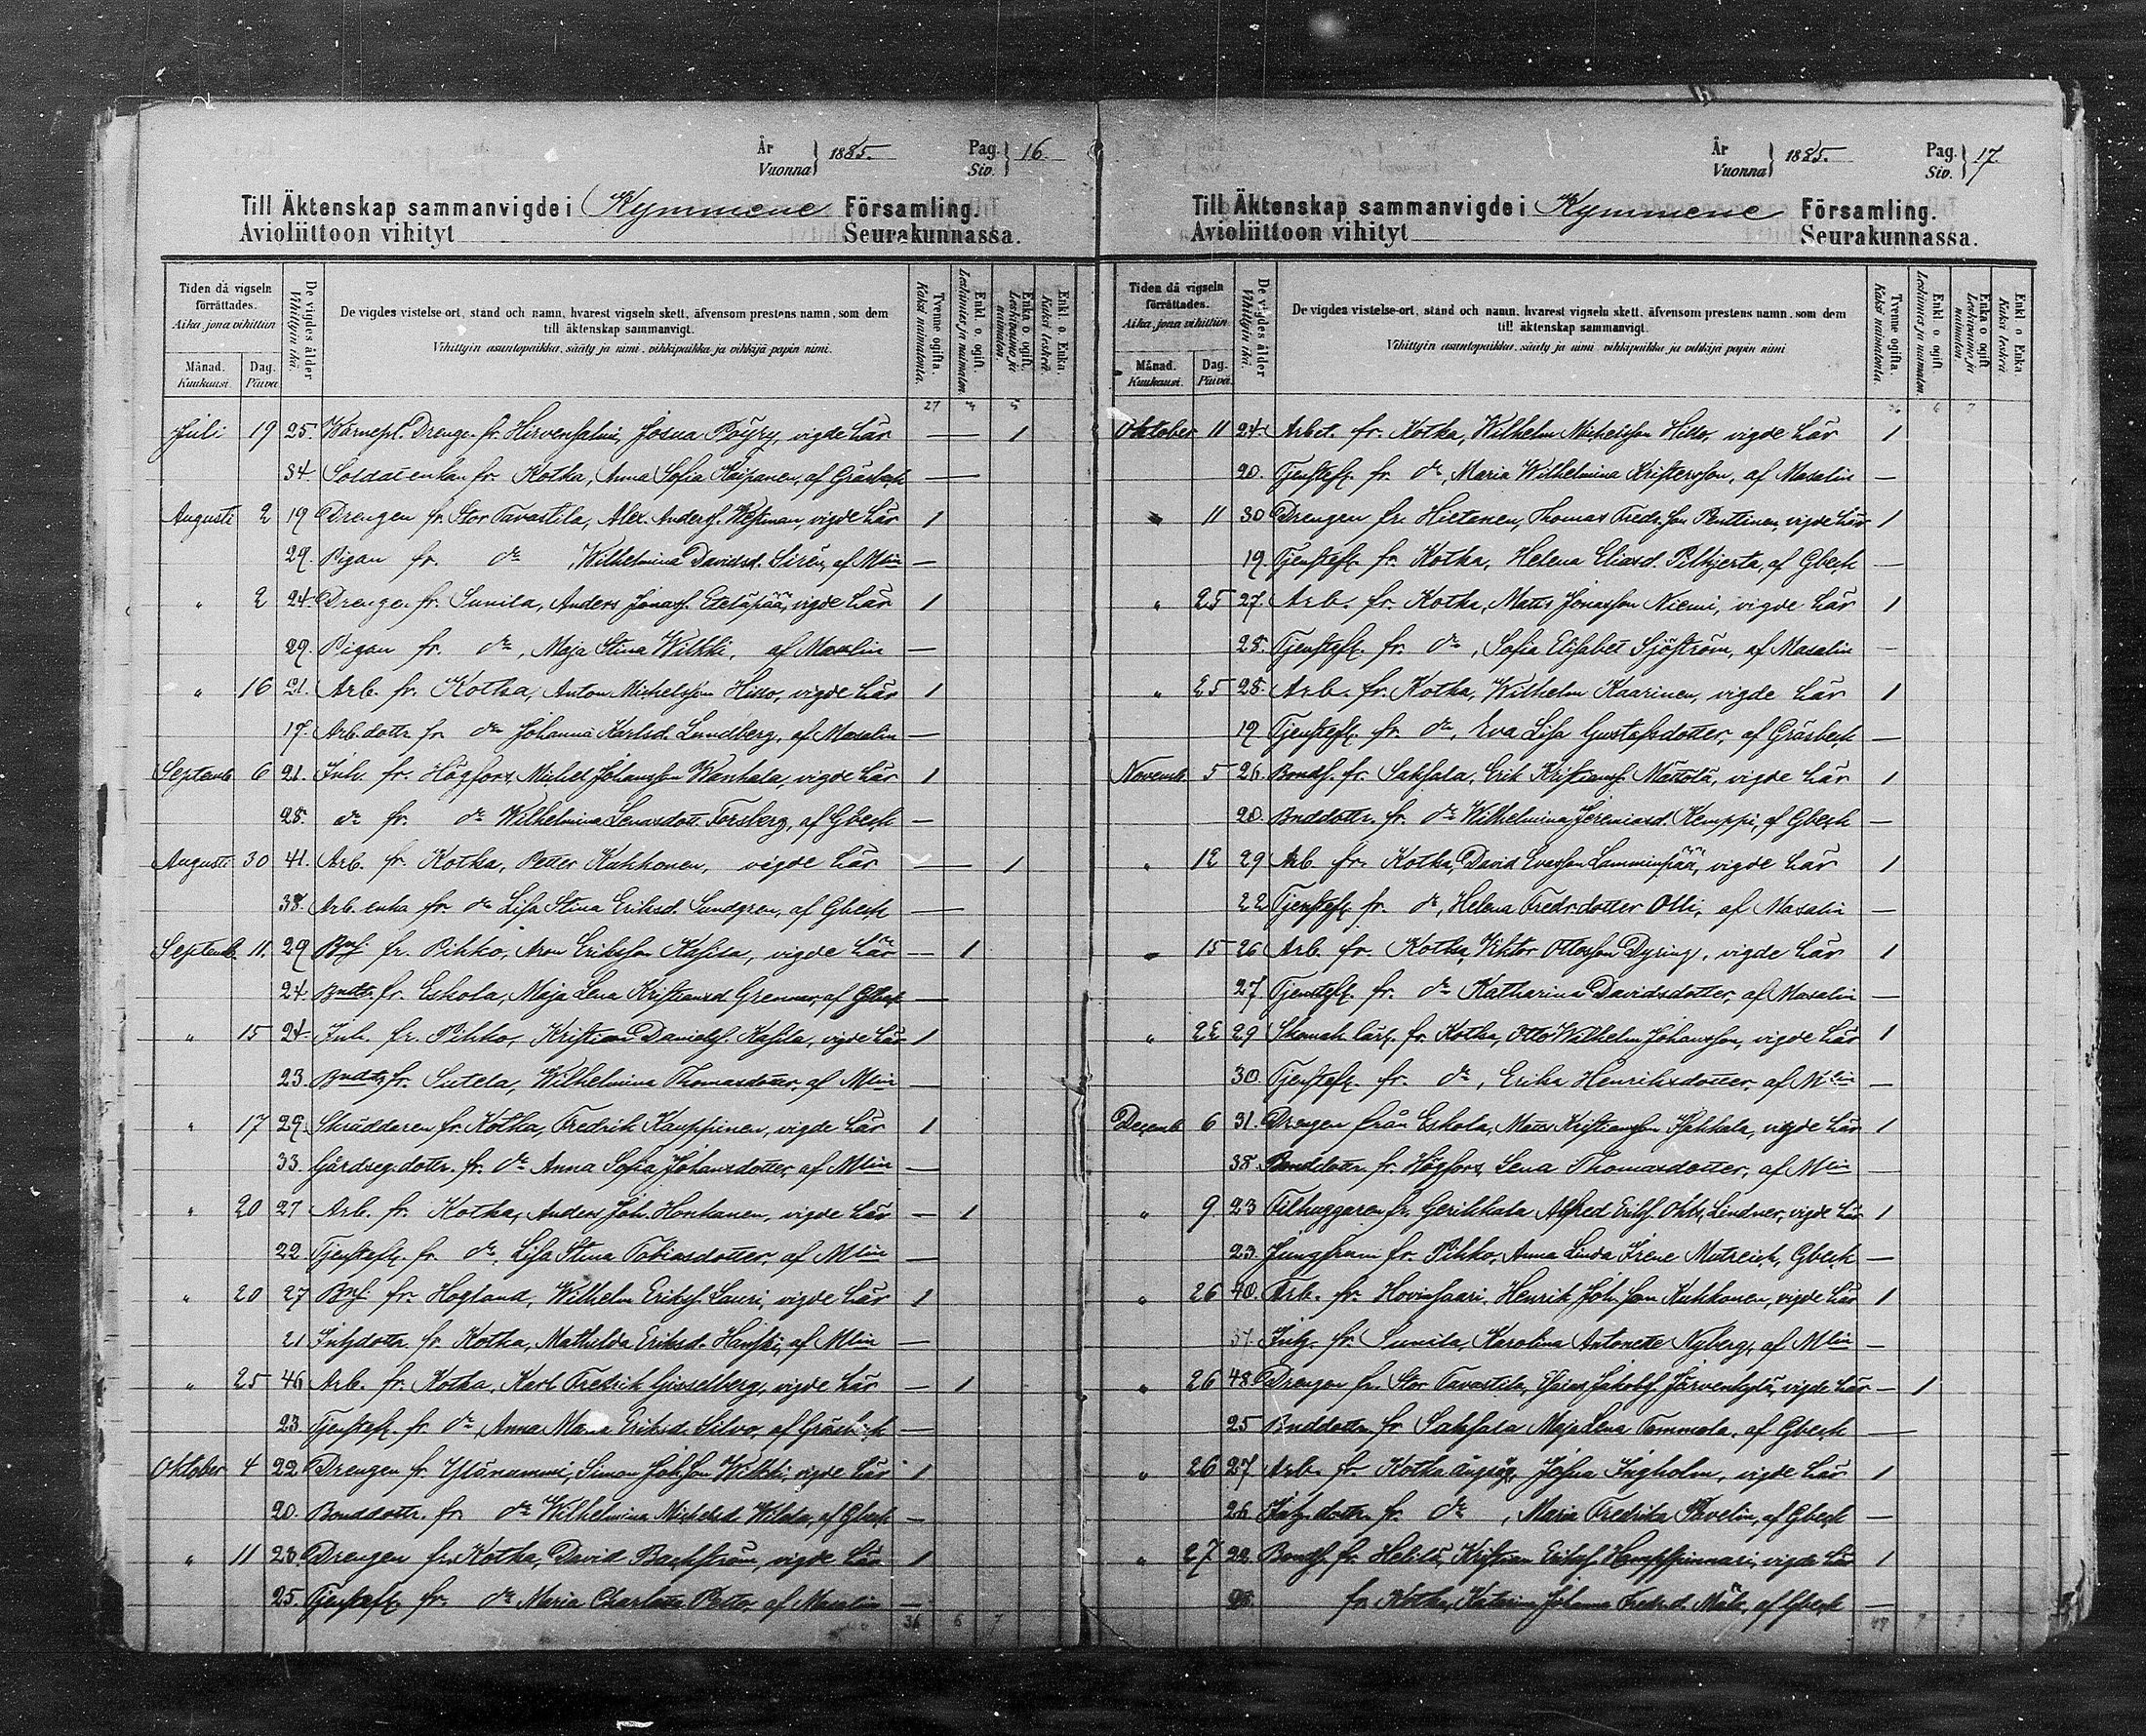 År Vuonna } 1885. Pag. Siv. } 16.
Till Äktenskap sammanvigde i Kymmene Församling.
Avioliittoon vihityt Seurakunnassa.
Tiden då vigseln förrättades. Aika, jona vihittiin
Månad. Kuukausi. Dag. Päivä.
De vigdes ålder Vihittyin ikä.
De vigdes vistelse-ort, stånd och namn, hvarest vigseln skett, äfvensom prestens namn, som dem till äktenskap sammanvigt.
Vihittyin asuntopaikka, sääty ja nimi, vihkipaikka ja vihkijä papin nimi.
Tvenne ogifta. Kaksi naimatonta.
Enkl. o. ogift. Leskimies ja naimaton.
Enka o. ogift. Leskivaimo ja naimaton.
Enkl. o. Enka. Kaksi leskeä.
27 5
Juli 19 25. Drengen fr. Hirvensalmi, Josua Pöyry, vigde här — 1
34. Soldatenkan fr. Kotka, Anna Sofia Käipänen, af Gräsbeck —
Augusti 2 19 Drengen fr. Stor Tavastila, Alex. Andersf. Westman, vigde här 1
29. Pigan fr. do Wilhelmina Davidsd. Sirén, af Mlin —
" 2 24. Drengen fr. Sunila, Anders Jonasf. Eteläpää, vigde här 1
29. Pigan fr. do, Maja Stina Wilkki, af Masalin —
" 16 21. Arb. fr. Kotka, Anton Michelsson Hisso, vigde här 1
17. Arb. dottr. fr. do Johanna Karlsd. Lundberg, af Masalin —
Septemb. 6 21. Inh. fr. Högfors, Michel Johansson Wanhala, vigde här 1
28. do fr. do Wilhelmina Lenasdott. Forsberg, af Gbeck —
Augusti 30 41. Arb. fr. Kotka, Petter Kukkonen, vigde här — 1
38. Arb. enka fr. do Lisa Stina Eriksd. Sundgren, af Gbeck —
Septemb. 11. 29 fr. Pihko, Aron Eriksson Kasila, vigde här — 1
24. fr. Eskola, Maja Lena Kristiansd. Grennar, af Gbeck —
" 15 24. Inh. fr. Pihko, Kristian Danielsf. Kasila, vigde här 1
23. fr. Sutela, Wilhelmina Thomasdotter, af Mlin —
" 17 29. Skräddaren fr. Kotka, Fredrik Kauppinen, vigde här 1
33. Gårdseg. dottr. fr. do Anna Sofia Johansdotter, af Mlin —
" 20 27 Arb. fr. Kotka, Anders Joh. Honkanen, vigde här — 1
22. Tjenstefl. fr. do, Lisa Stina Tobiasdotter, af Mlin —
" 20 27 fr. Hogland, Wilhelm Eriksf. Lauri, vigde här 1
21 fr. Kotka, Mathilda Eriksd. af Mlin —
" 25 46 Arb. fr. Kotka, Karl Fredrik Gisselberg, vigde här — 1
23 Tjenstefl. fr. do, Anna Maria Eriksd. Silvo, af Gräsbeck —
Oktober 4 22 Drengen fr. Ylänummi, Simon Joh.son Wilkki, vigde här 1
20. Bonddottr. fr. do Wilhelmina Michelsd. af Gbeck —
" 11 23. Drengen fr. Kotka, David Backström, vigde här 1
25. Tjenstefl. fr. do Maria Charlotta af Masalin —
36 6 7
År Vuonna } 1885. Pag. Siv. } 17.
Till Äktenskap sammanvigde i Kymmene Församling.
Avioliittoon vihityt Seurakunnassa.
Tiden då vigseln förrättades. Aika, jona vihittiin
Månad. Kuukausi. Dag. Päivä.
De vigdes ålder Vihittyin ikä.
De vigdes vistelse-ort, stånd och namn, hvarest vigseln skett, äfvensom prestens namn, som dem till äktenskap sammanvigt.
Vihittyin asuntopaikka, sääty ja nimi, vihkipaikka ja vihkijä papin nimi
Tvenne ogifta. Kaksi naimatonta.
Enkl. o. ogift. Leskimies ja naimaton.
Enka o. ogift. Leskivaimo ja naimaton.
Enkl. o. Enka. Kaksi leskeä.
36 6 7
Oktober 11 24. Arbet. fr. Kotka, Wilhelm Michelsson Hisso, vigde här 1
20. Tjenstefl. fr. do, Maria Wilhelmina Kristersson, af Masalin —
" 11 30 Drengen fr. Hietanen, Thomas Fredr.son Penttinen, vigde här 1
19. Tjenstefl. fr. Kotka, Helena Eliasd. Pilhjerta, af Gbeck —
" 25 27. Arb. fr. Kotka, Matts Jonasson Niemi, vigde här 1
28. Tjenstefl. fr. do, Sofia Elisabet Sjöström, af Masalin —
" 25 28. Arb. fr. Kotka, Wilhelm Kaarinen, vigde här 1
19 Tjenstefl. fr. do, Eva Lisa Gustafsdotter, af Gräsbeck —
Novemb. 5 26. Bondf. fr. Saksala, Erik Kristiansf. Mättölä, vigde här 1
20. Bnddottr. fr. do Wilhelmina Jeremiasd. Kemppi, af Gbeck —
" 12 29 Arb. fr. Kotka, David Evasson Lamminpää, vigde här 1
22 Tjenstefl. fr. do, Helena Fredr.dotter Olli, af Masalin —
" 15 26 Arb. fr. Kotka, Viktor Ottosson Dyring, vigde här 1
27 Tjenstefl. fr. do Katharina Davidsdotter, af Masalin —
" 22 29 Skomak. lärl. fr. Kotka, Otto Wilhelm Johansson, vigde här 1
30. Tjenstefl. fr. do, Erika Henriksdotter, af Mlin —
Decemb. 6 31. Drengen från Eskola, Matts Kristiansson vigde här 1
38. Bonddottr. fr. Högfors, Lena Thomasdotter, af Mlin —
" 9 23 Filhuggaren fr. Gerikkala Alfred Eriksf. Lindner, vigde här 1
23. Jungfrun fr. Pihko, Anna Linda Irene Mutreich, Gbeck —
" 26 40. Arb. fr. Hovinsaari, Henrik Joh.son Kukkonen, vigde här 1
37. fr. Sunila, Karolina Antonette Nyberg, af Mlin —
" 26 48 Drengen fr. Stor Tavastila, Esaias Jakobsf. Järvenkylä, vigde här — 1
25 Bnddottr. fr. Saksala Maja Lena Tommola, af Gbeck —
" 26 27 Arb. fr. Kotka ångsåg, Josua Ingholm, vigde här 1
26 dottr. fr. do, Maria Fredrika Pavelin, af Gbeck —
" 27 22 Bondf. fr. Helilä, Kristian Eriksf. vigde här 1
fr. Kotka, Katarina Johanna Fredr.d. af Gbeck —